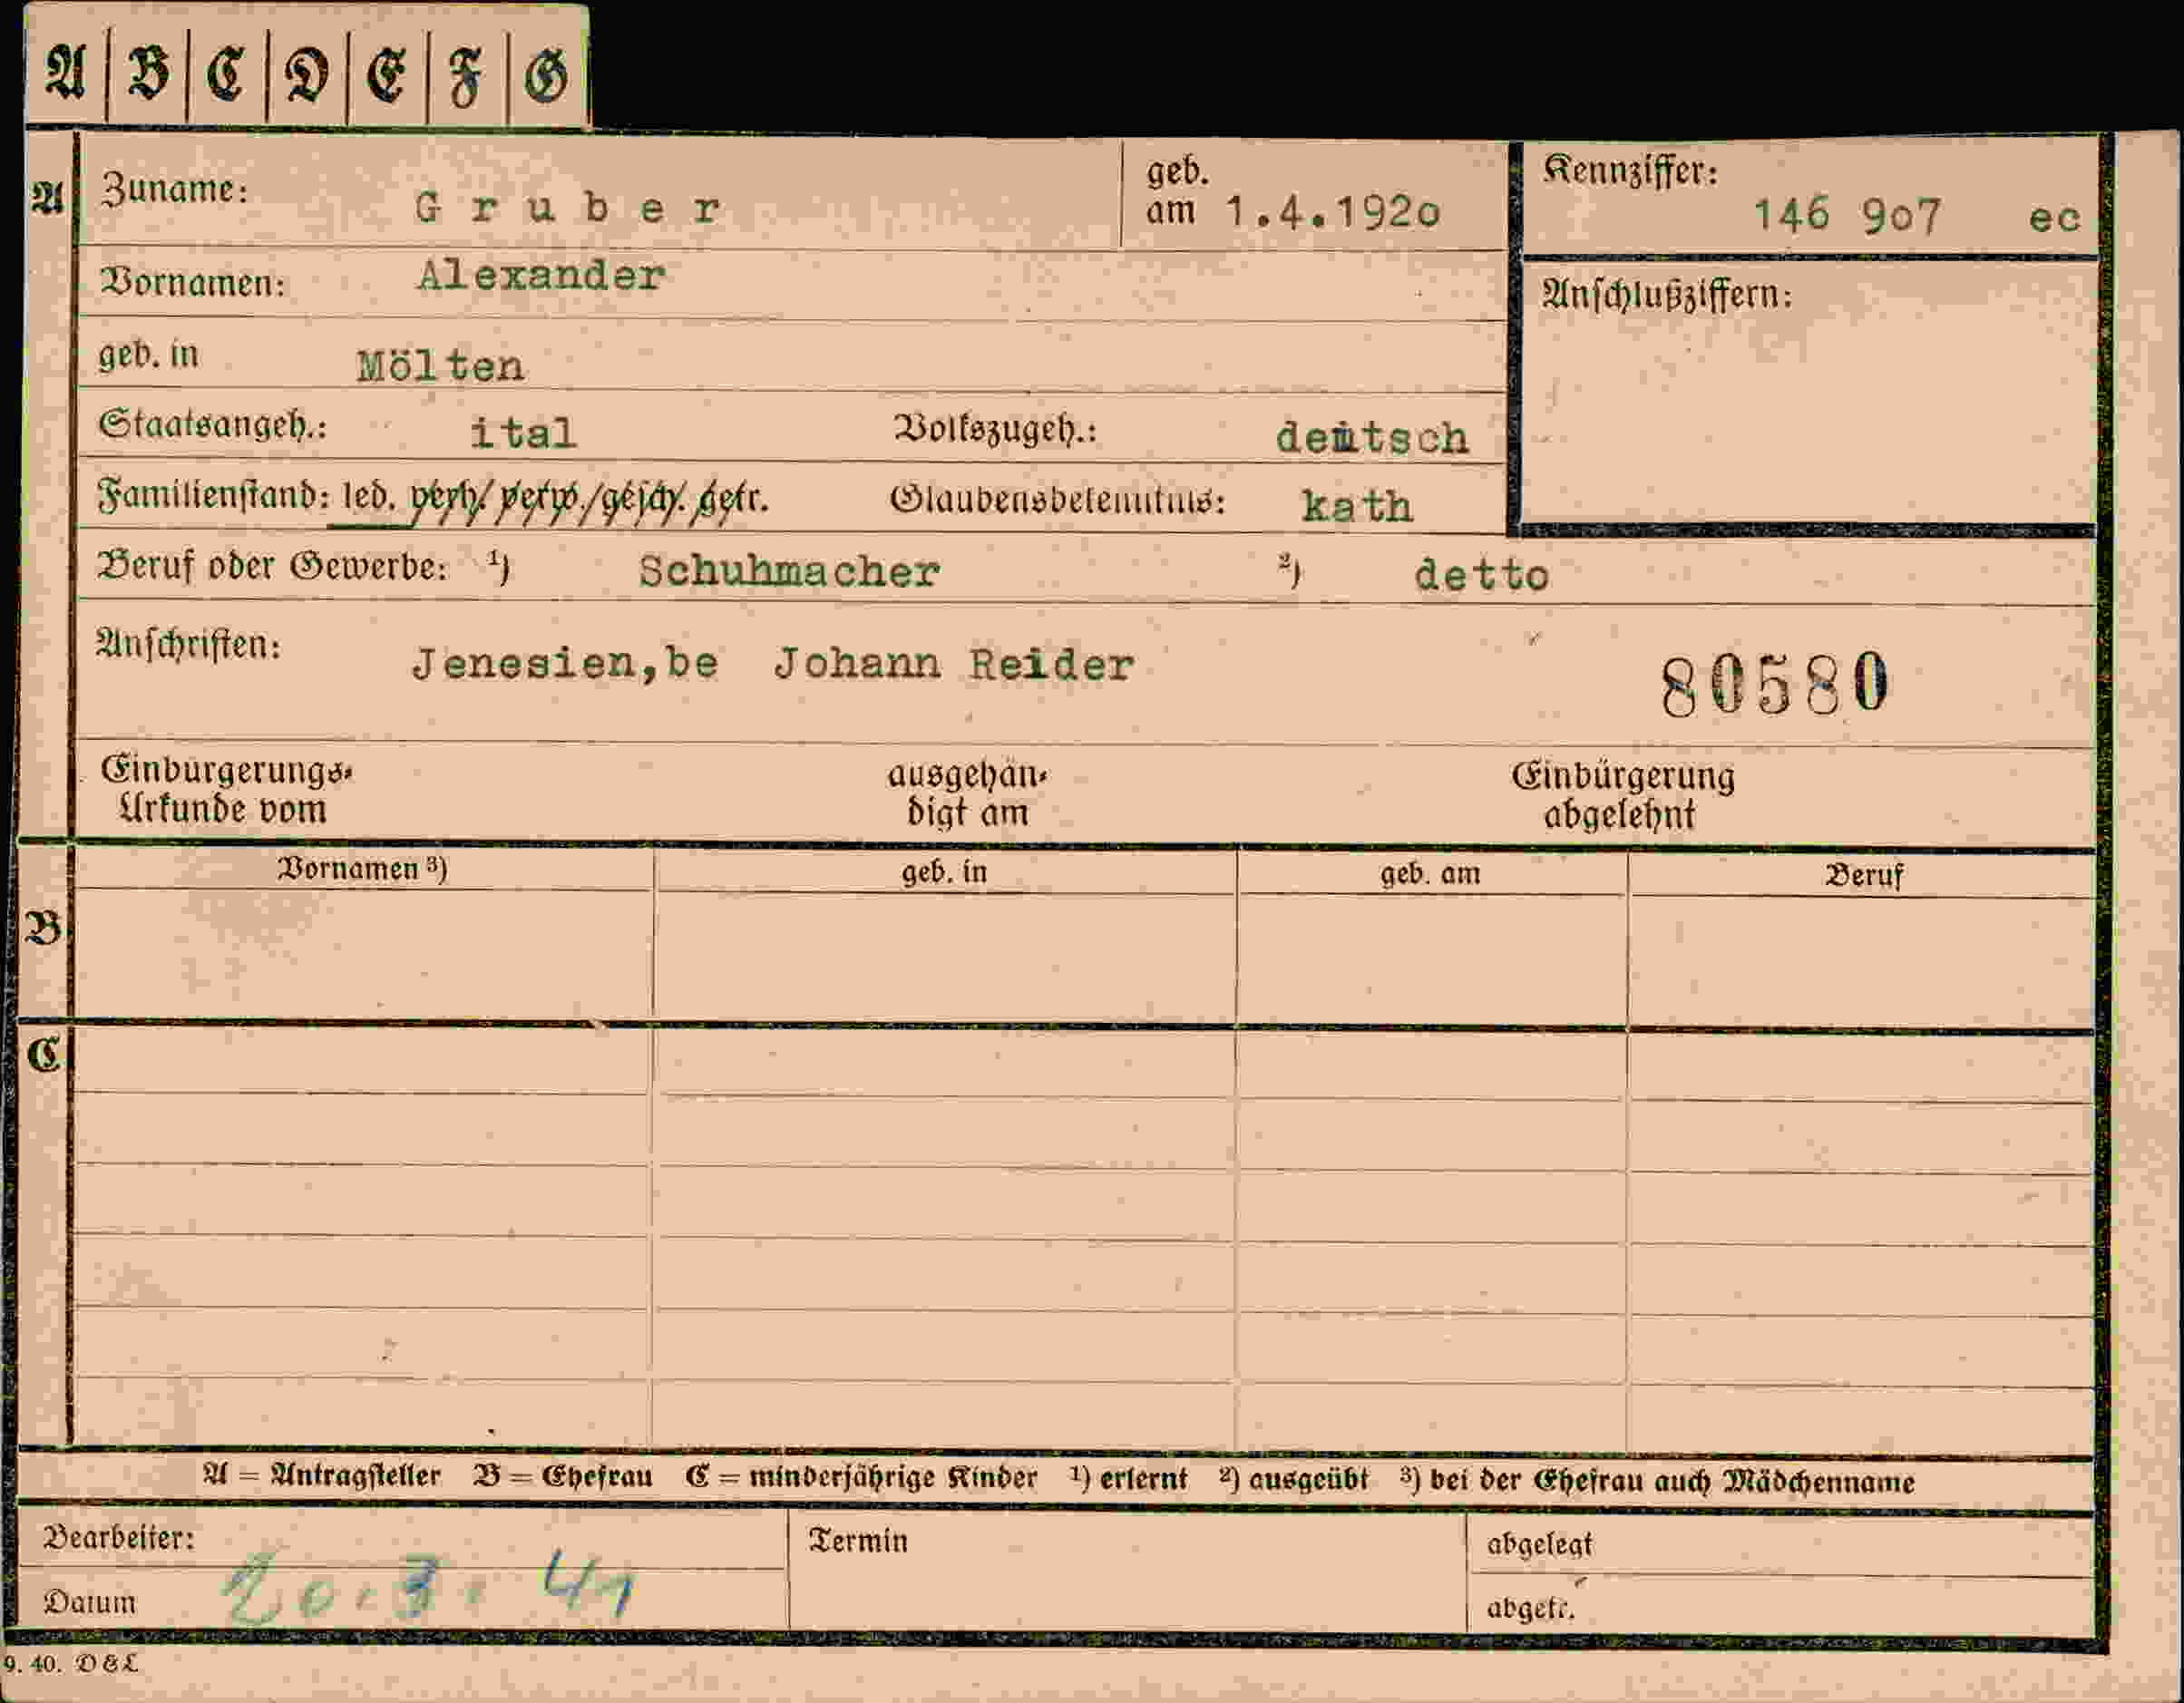 A B C D E F G
A Zuname: Gruber geb. am 1.4.1920 Kennziffer: 146 907 ec
Vornamen: Alexander Anschlußziffern:
geb. in Mölten
Staatsangeh.: ital Volkszugeh.: deutsch
Familienstand: led. verh./verw./gesch. getr. Glaubensbekenntnis: kath
Beruf oder Gewerbe: 1) Schuhmacher 2) detto
Anschriften: Jenesien,be Johann Reider 80580
Einbürgerungs- ausgehän- Einbürgerung
Urkunde vom digt am abgelehnt
Vornamen 3) geb. in geb. am Beruf
B
C
A = Antragsteller B = Ehefrau C = minderjährige Kinder 1) erlernt 2) ausgeübt 3) bei der Ehefrau auch Mädchenname
Bearbeiter: Termin abgelegt
Datum 20.3.41 abgetr.
9. 40. D&L